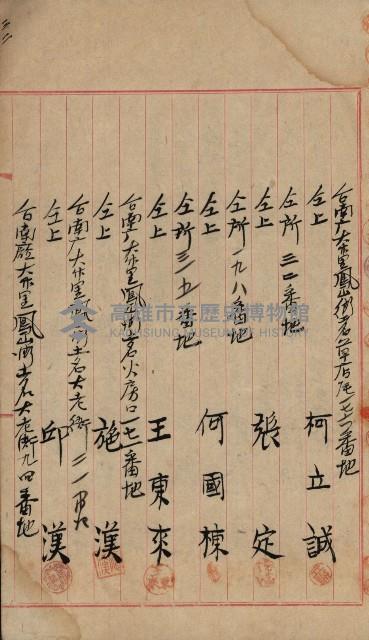 台南廳大竹里鳳山街土名草店尾七二番地
仝上 柯立誠
仝所三一番地
仝上 張定
仝所一九八番地
仝上 何國棟
仝所三一五番地
仝上 王東來
台南廳大竹里鳳山街土名火房口七一番地
仝上 施漢
台南廳大竹里鳳山街土名大老衙二一番地
仝上 邱漢
台南廳大竹里鳳山街土名大老衙九四番地
高雄市立歷史博物館
KAOHSIUNG MUSEUM OF HISTORY